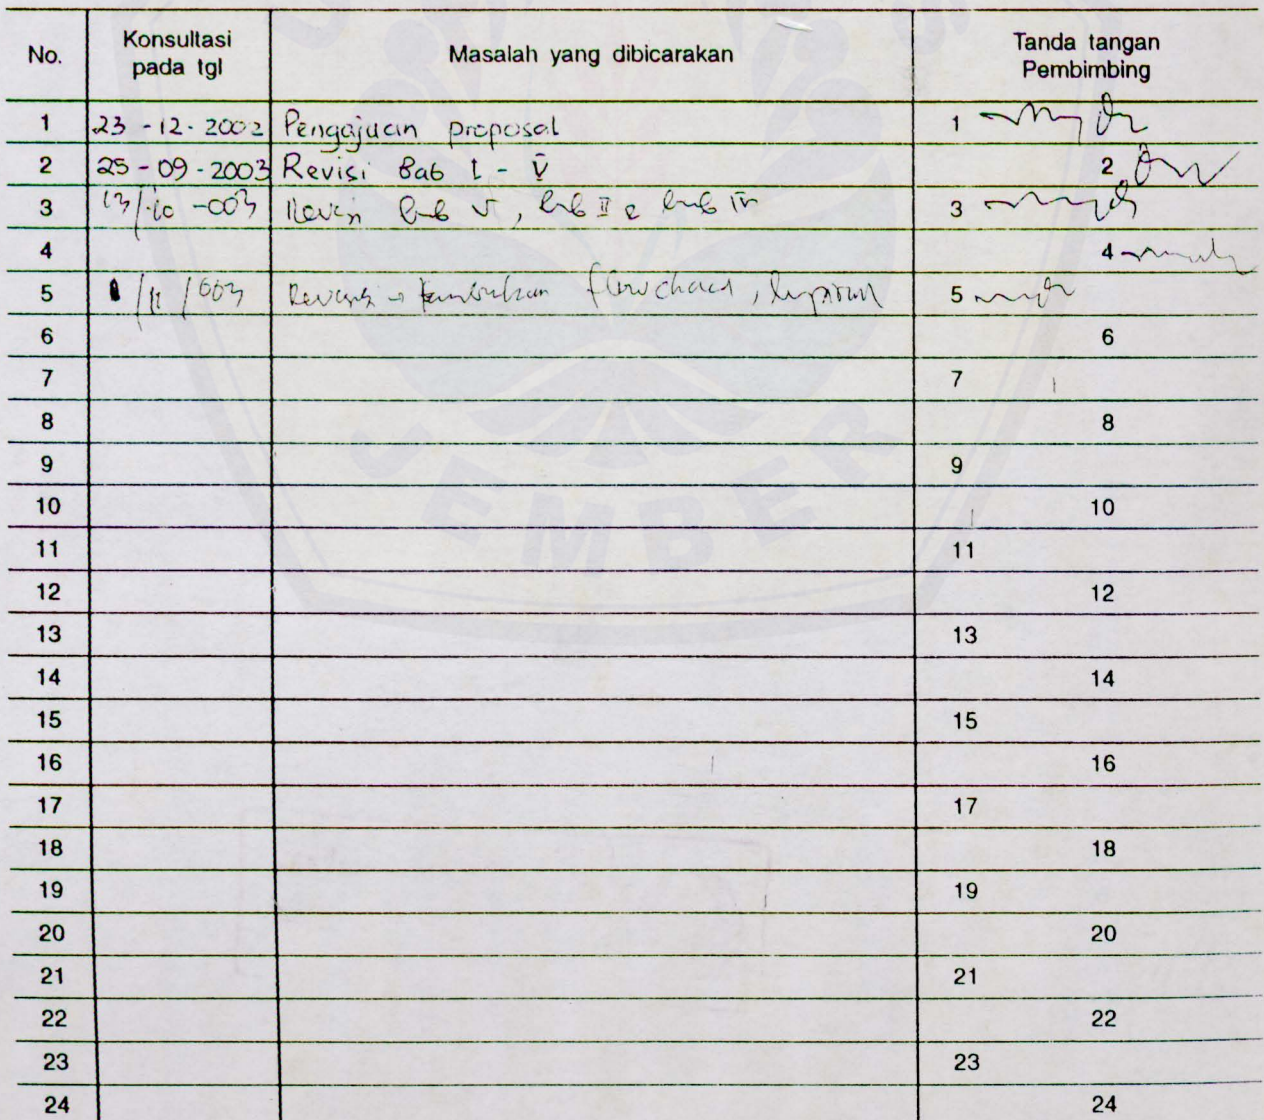 No. Konsultasi pada tgl Masalah yang dibicarakan Tanda tangan Pembimbing
1 23-12-2002 Pengajuan proposal 1
2 25-09-2003 Revisi Bab I - V 2
3 13/10-003 Revisi bab V, bab II & bab IV 3
4 4
5 /11/003 Revisi flowchart, 5
6 6
7 7
8 8
9 9
10 10
11 11
12 12
13 13
14 14
15 15
16 16
17 17
18 18
19 19
20 20
21 21
22 22
23 23
24 24
JEMBER